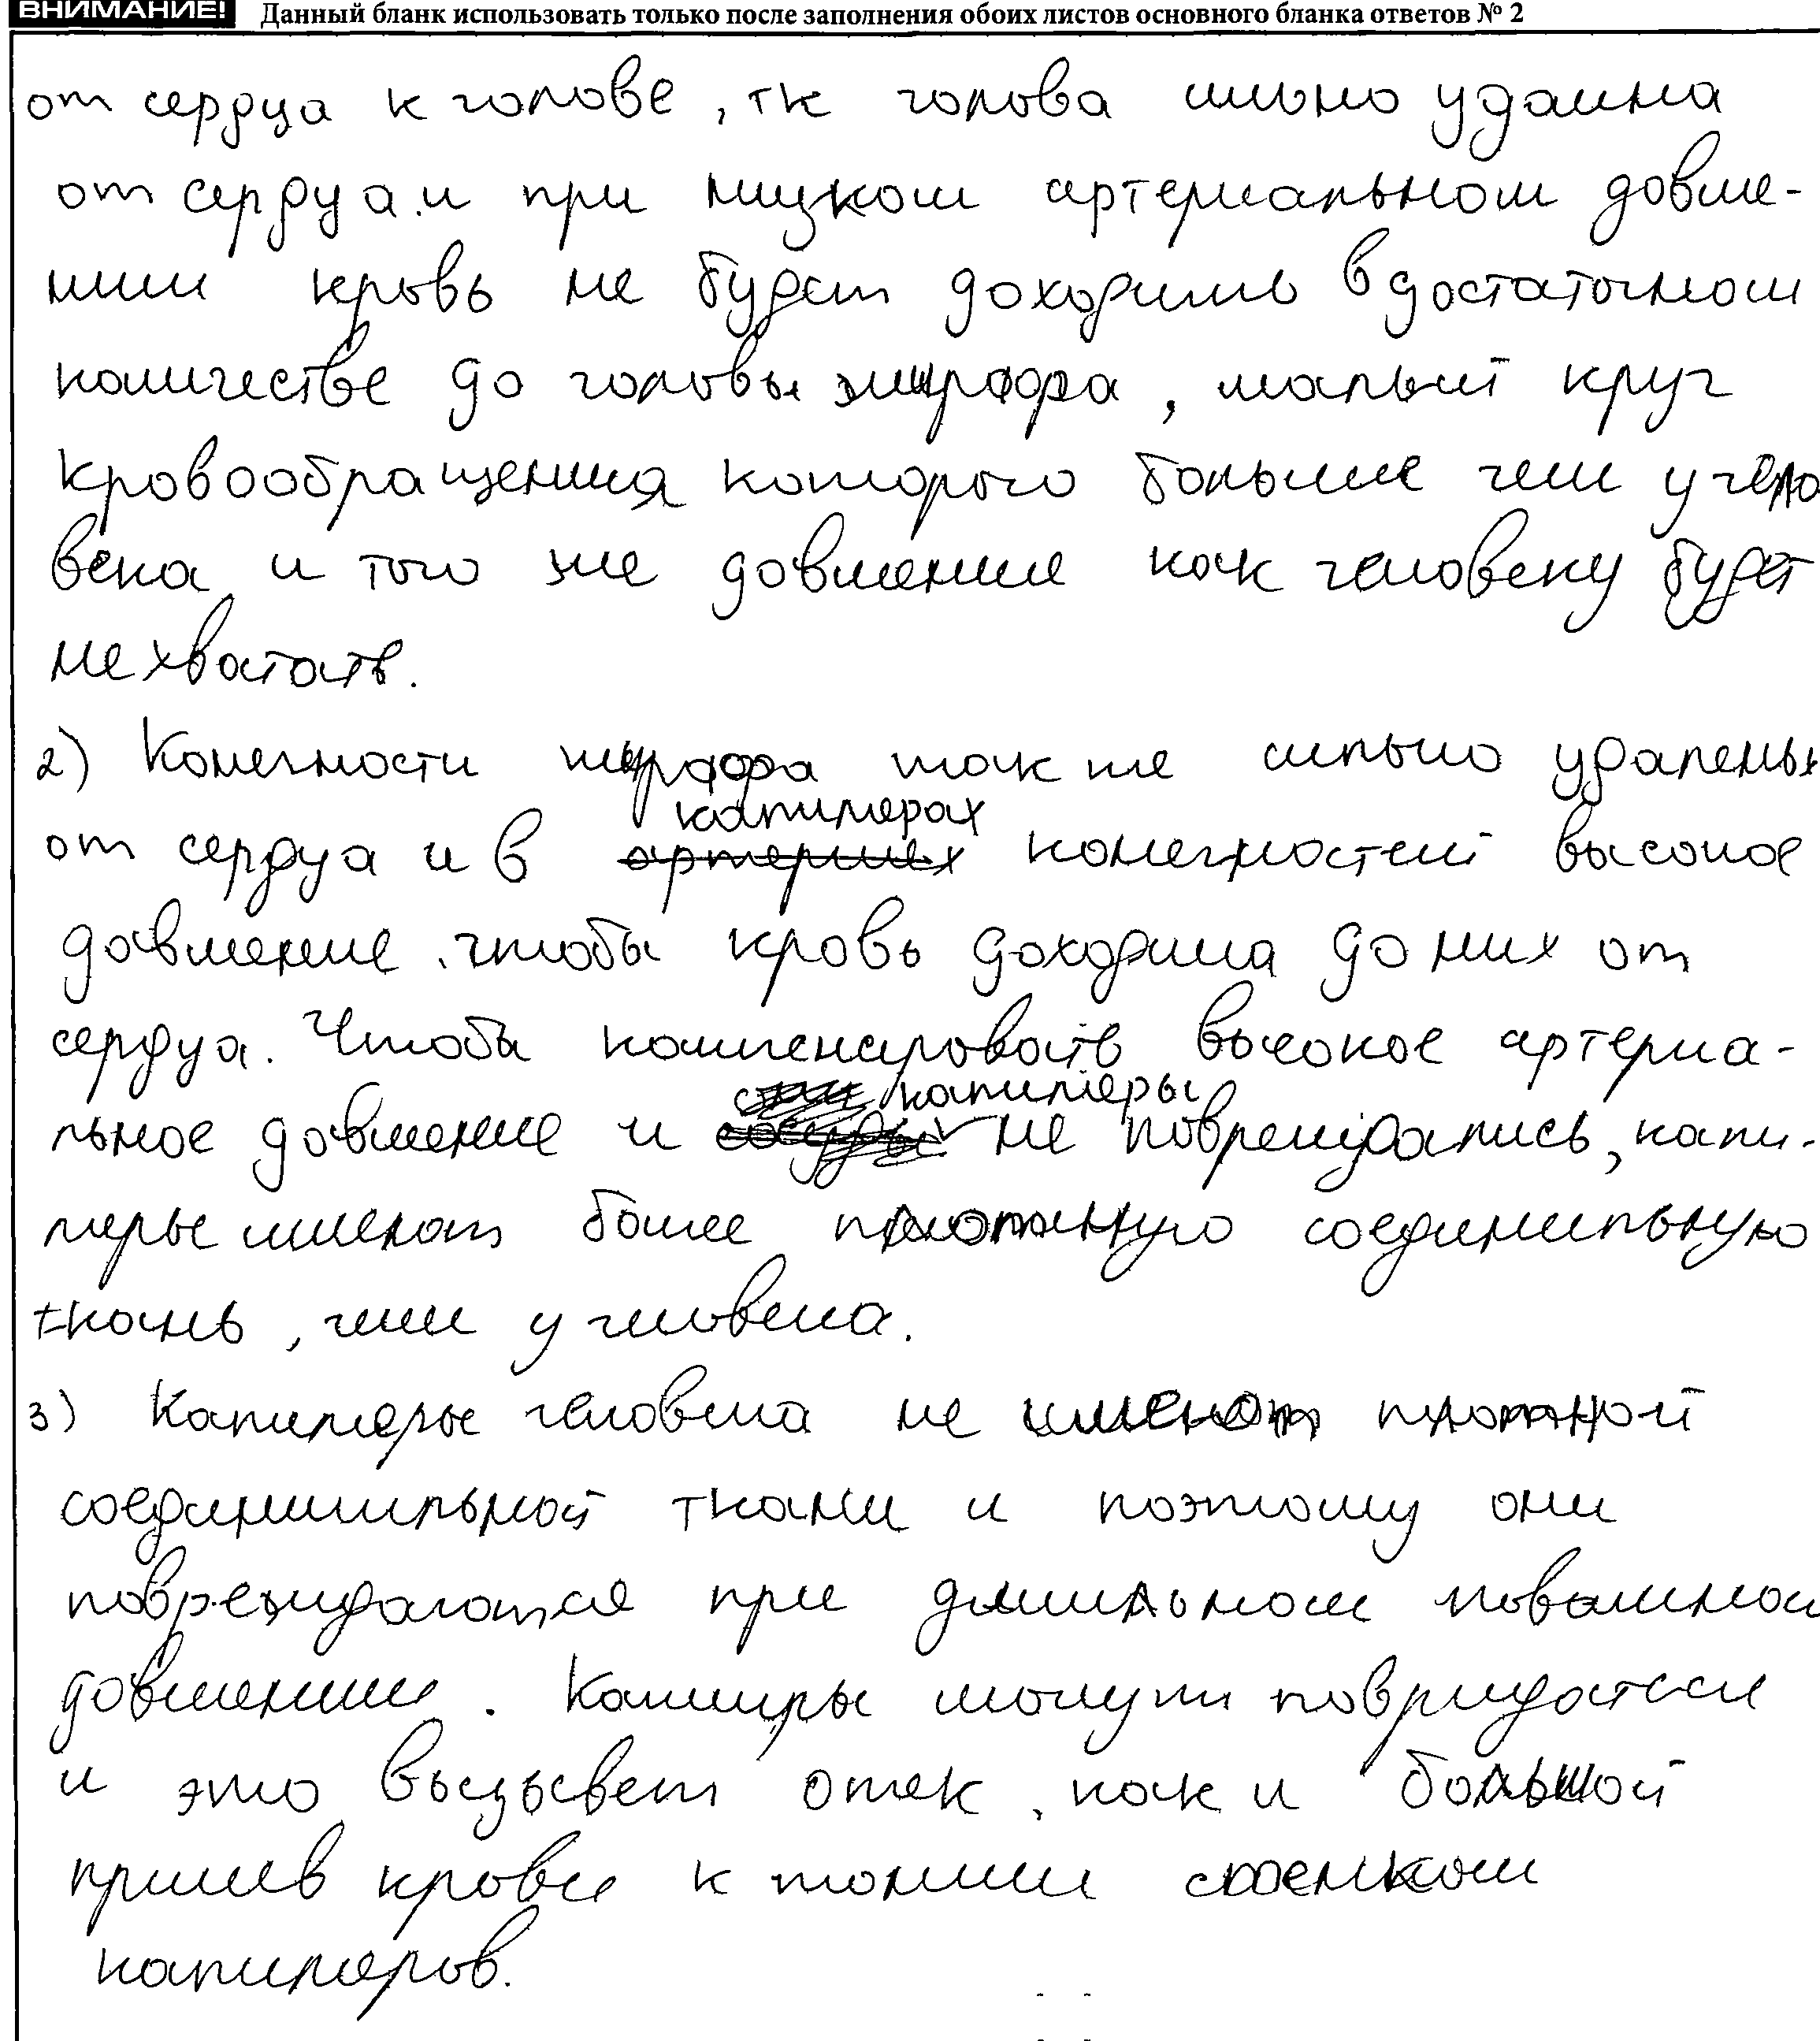 ВНИМАНИЕ! Данный бланк использовать только после заполнения обоих листов основного бланка ответов № 2
от сердца к голове, тк голова сильно удалена
от сердца и при низком артериальном давле-
нии кровь не будет доходить в достаточном
количестве до головы жирафа, малый круг
кровообращения которого больше чем у чело
века и того же давление как человеку будет
не хватать.
2) Конечности жирафа так же сильно удалены
от сердца и в капилерах конечностей высокое
давление, чтобы кровь доходила до них от
сердца. Чтобы компенсировать высокое артериа-
льное давление и капилеры не повреждались, капи-
леры имеют более плотную соединильную
ткань, чем у человека.
3) Капилеры человека не имеют плотной
соединильной ткани и поэтому они
повреждаются при длильном повышном
давлении. Капиры могут повридаться
и это вызывет отек, как и большой
прилив крови к тонким стенкам
капилеров.